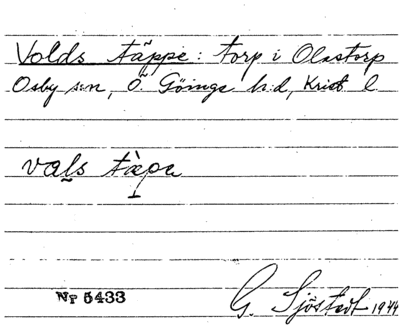 Volds täppe: torp i Olastorp
Osby sn, Ö. Göinge h:d, Krist l
vals tæpa
Nr 5433
G. Sjöstedt 1944